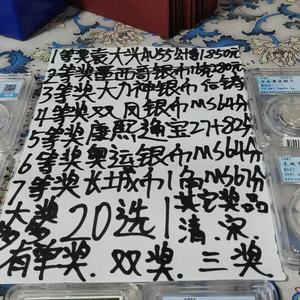 1等奖袁大头AU55公博1350元
2等奖墨西哥银币
3等奖大力神银币
4等奖双凤银币MS64分
5等奖康熙通宝27+82分
6等奖奥运银币MS68分
7等奖长城币1角MS67分
大奖
多多
20选1
其它奖品
清.宋
有单奖.双奖.三奖